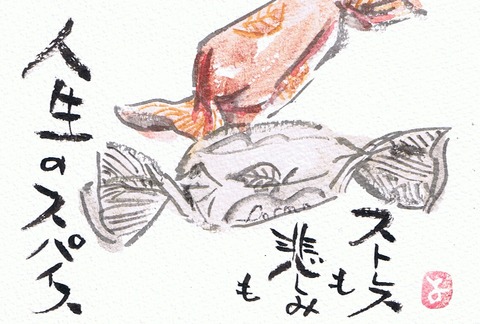 ストレスも
悲しみも
人生のスパイス
よ